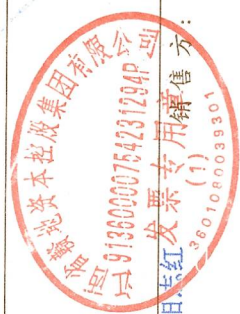 江西省赣地资本控股集团有限公司
91360000754231294P
发票专用章
(1)
3601080039301
销售方: